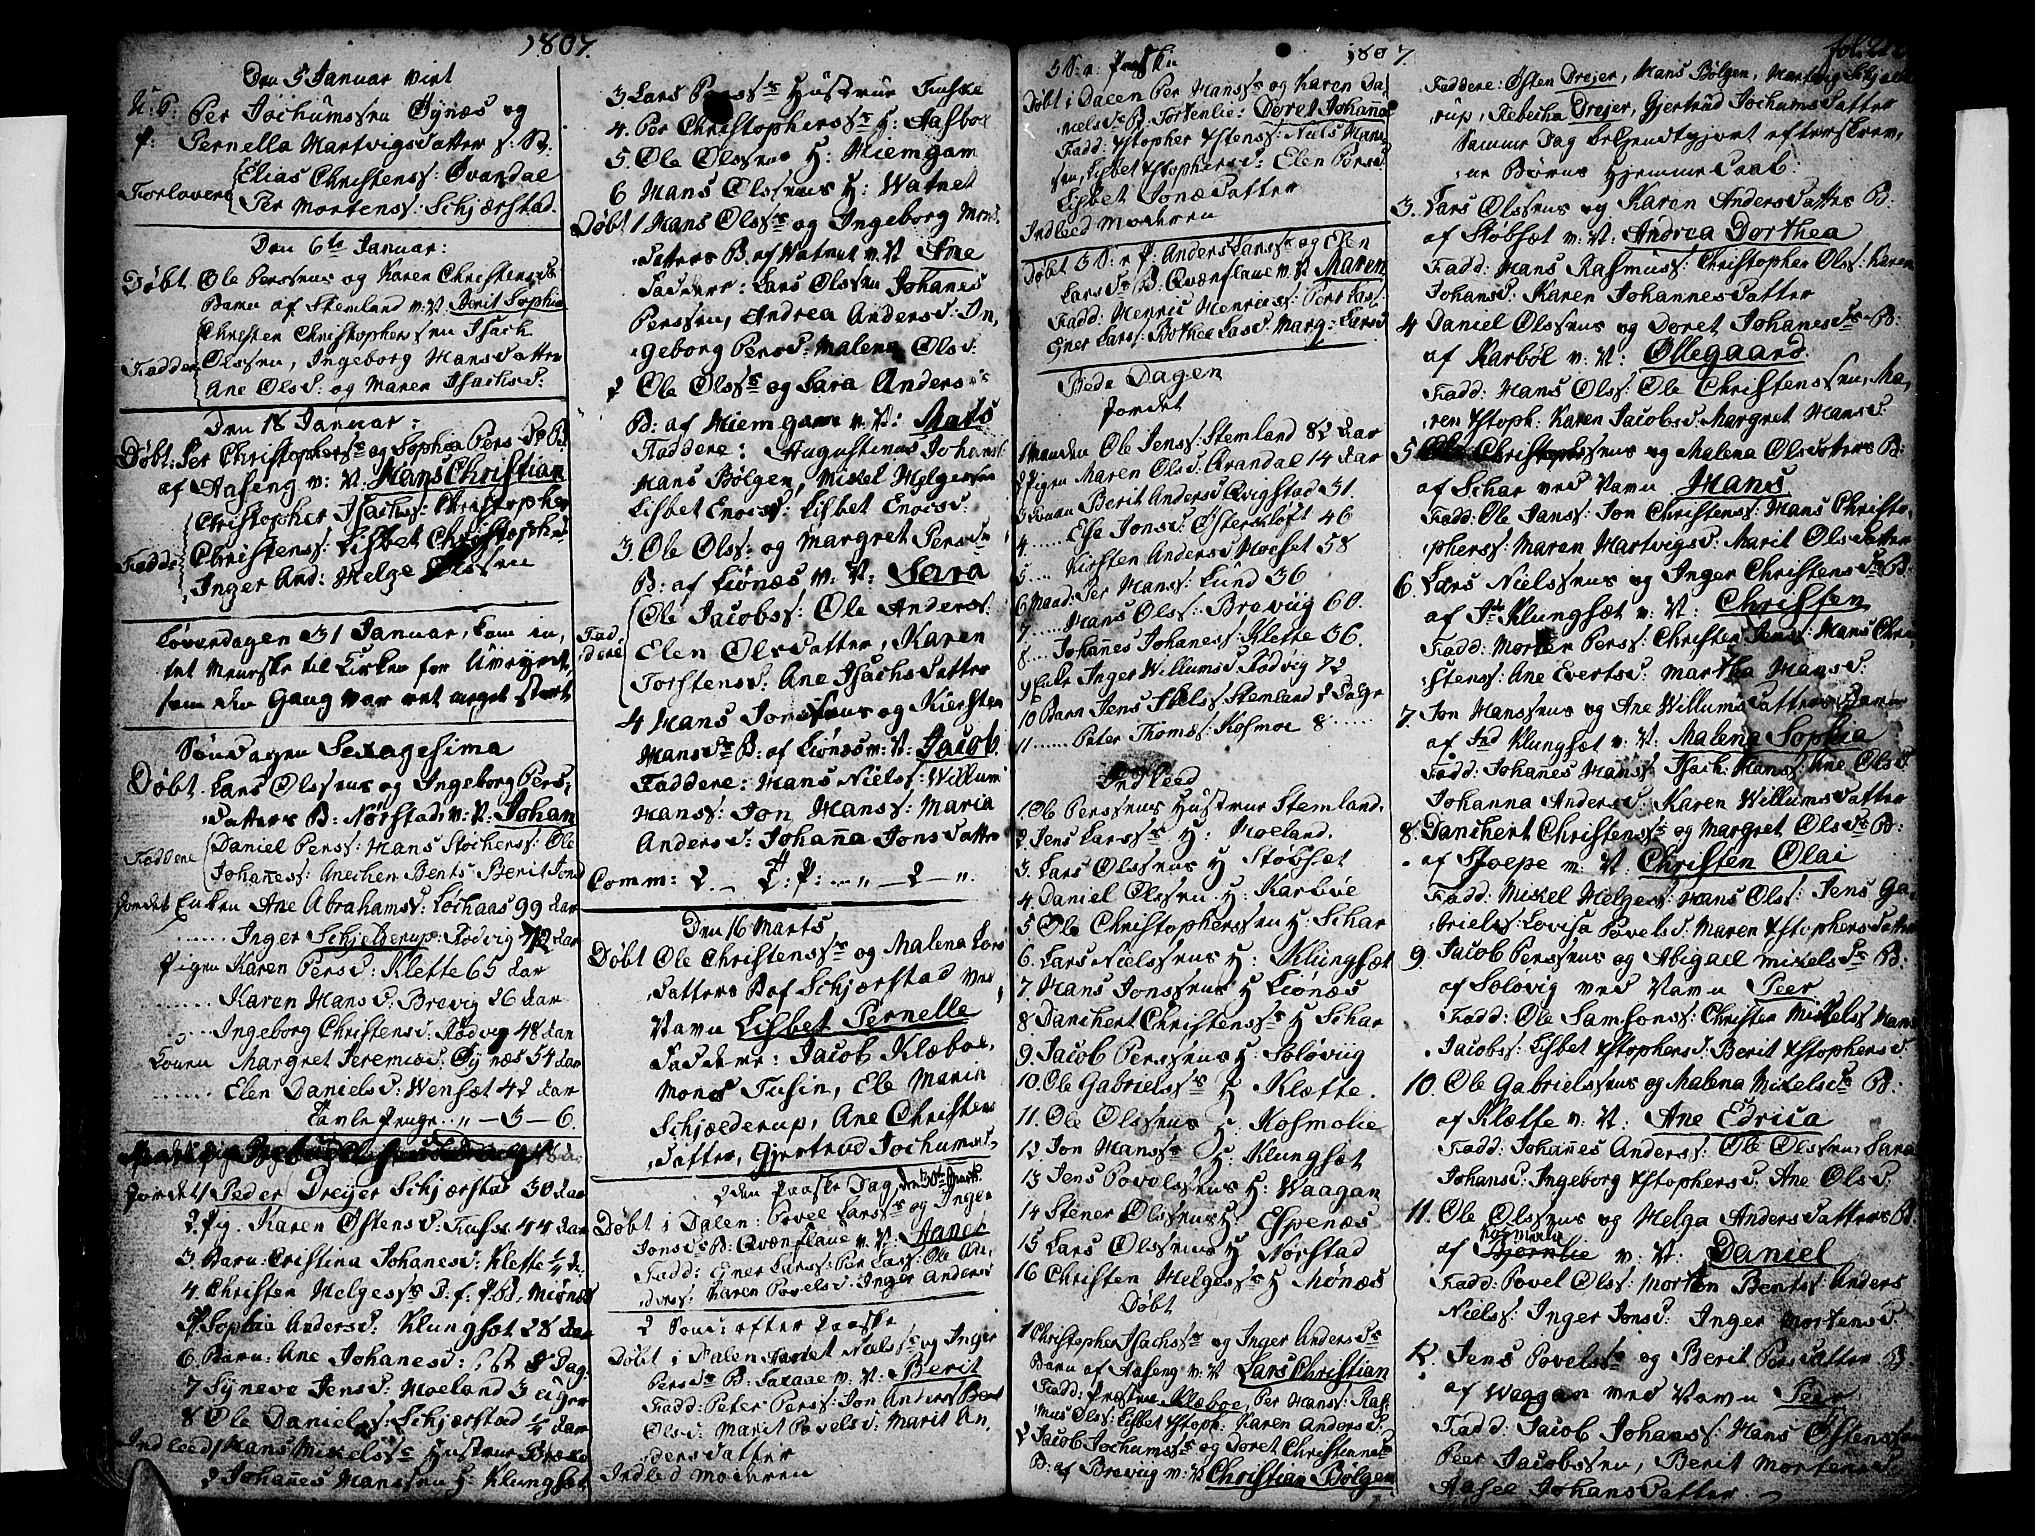 1807
Den 5 Januar viet
Per Jochumssen Øynæs og
Pernella Hartvigsdatter
Elias Christens: Øvandal
Forlovere
Per Mortens: Schjærstad
Den 6te Januar:
Døbt Ole Perssens og Karen Christensd:
Barn af Stemland v: N: Berit Sophia
Christen Christophersen Isach
Faddere Olssen, Ingeborg Hansdatter
Ane Olsd: og Maren Isachsd:
Den 18 Januar:
Døbt: Per Christophers: og Sophia Persd: B:
af Aaseng v: N: Hans Christian
Christopher Isachs: Christopher
Faddere Christens: Lisbet Christophersd
Inger And: Helge Olssen
Løverdagen 31 Januar, kom in,
tet Menneske til Kirken for
som den Gang var ret meget sterk
Søndagen Sexagesima
Døbt Lars Olssens og Ingeborg Pers,
datters B: Nørstad v: N: Johan
Faddere Daniel Pers: Hans Stochers: Ole
Johanes: Anechen Bents Berit Jonsd
Jordet Enken Ane Abrahamsd: Lochaas 99 Aar
...... Inger Schjelderup: Rødvig 72 Aar
Pigen Karen Persd: Klette 65 Aar
...... Karen Hansd: Brevig 26 Aar
...... Ingeborg Christensd: Rødvig 48 Aar
Konen Margret Jeremisd: Øynæs 54 Aar
...... Elen Danielsd: Wenset 42 Aar
Tavle Penge .. " — 3 — 6.
Jordet 1 Peder Dreyer Schjærstad 30 Aar
2. Pig. Karen Østensd: Fuske 44 Aar
3. Barn: Cristina Johanesd: Klette 1/4 A:
4. Christen Helgess: D. f. P. B. Miønes
5 Sophia Andersd: Klungset 28 Aar
6. Barn: Ane Johanesd: 8 Dag:
7 Syneve Jensd: Moeland 3 uger
8 Ole Daniels: Schjærstad 1/4 Aar
Indleed 1 Hans Mikelss: Hustrue
2 Johanes Hanssens H: Klungset
3 Lars Perss: Hustrue Fuske
4. Per Christopherss: H: Aasbak
5. Ole Olssens H: Hiemgam
6 Hans Olssens H: Watnet
Døbt 1 Hans Olss: og Ingeborg Mons
datters B. af Watnet v: N: Ane
Faddere: Lars Olssen Johanes
Perssen, Andrea Andersd: In,
geborg Persd: Malena Olsd:
2 Ole Olss: og Sara Anders
B: af Hiemgam v: N: Mads
Faddere: Augustinus Johans:
Hans Bølgen, Mikel Helgersen
Lisbet Enocsd: Lisbet Enocsd:
3 Ole Ols: og Margret Persd
B: af Liønæs v: N: Sara
Faddere Ole Jacobs: Ole Anders:
Elen Olsdatter, Karen
Torstensd: Ane Isachsdatter
4 Hans Jonssens og Kiersten
Hansd: B: af Liønes v: N: Jacob
Faddere: Hans Niels: Willum
Hans: Jon Hans: Maria
Andersd: Johana Jonsdatter
Comm: 2 —
Den 16 Marts
Døbt Ole Christenss: og Malena Lars
datters B af Schjærstad ved
Navn Lisbet Pernelle
Faddere: Jacob Klæboe,
Mons Fusin, Ele Marin
Schjælderup, Ane Christens
datter, Gjertrud Jochums,
2den Paaske Dag, den 30te Marts
Døbt i Dalen: Povel Larss: og Inger
Jonsd: B: Qvænflaue v: N: Janet
Fadd: Ejner Lars: Per Lars: Ole An,
ders: Karen Povelsd: Inger Andersd
2 Sønd: efter Paaske
Døbt i Dalen Daniel Nielss: og Inger
Persd: B: v: N: Berit
Fadd: Peter Pers: Jon Anders Berit
Olsd: Marit Povelsd: Marit An,
dersdatter
Indled moderen
1807
3 S: a: Paaske
Døbt i Dalen Per Hanss: og Karen Da,
nielsd: B: Tortenlie: Doret Johana
Fadd: Xstopher Xstens: Niels Hans
sen, Lisbet Xstophersd: Elen Persd
Lisbet Jonsdatter
Indleed moderen
Døbt 3 S: a P: Anders Larss: og Elen
Larsd: B: Qvænflaue v: N: Maren
Fadd: Henric Henrics: Per Lars:
Ejner Lars: Bothea Lasd: Marg: Larsd
Bede Dagen
Jordet
1 Manden Ole Jens: Stemland 82 Aar
2 Pigen Maren Olsd: Qvandal 14 Aar
3 Konen Berit Andersd: Qvigstad 31.
4. ...... Else Jonsd: Østerkløft 46
5. .... Kirsten Andersd Hoset 58
6 Mand: Per Hans: Lund 36
7. ...... Hans Ols: Breviig 60.
8. .... Johanes Johanes: Klette 36.
9 Enke Inger Willumsd Rødvig 72
10 Barn Jens Niels: Stemland 2 Dage
11 ...... Peter Thoms: Kosmoe 8 ......
Indleed
1. Ole Perssens Hustrue Stemland.
2. Jens Larss: H: Moeland.
3. Lars Olssens H Støbset
4. Daniel Olssen H: Karbøe
5 Ole Christopherssen H: Schar
6. Lars Nielssens H: Klungset
7. Hans Jonssens H Liønæs
8 Danchert Christenss: H Schar
9. Jacob Perssens H: Soløviig
10. Ole Gabrielss: H Klætte.
11. Ole Olssens H: Kosmolie
12 Jon Hanss: H: Klungset
13 Jens Povelssens H: Waagan
14 Stener Olssens H: Espenæs
15 Lars Olssens H Nørstad
16 Christen Helgess: H Mønæs
Døbt
1 Christopher Isachss: og Inger Andersd:
Barn af Aaseng v: N Lars Christian
Fadd: Præsten Klæboe, Per Hans: Ras,
mus Ols: Lisbet Xstoph: Karen Andersd:
2 Jacob Jochumss: og Doret Christensd:
B: af Breviig v: N: Christian Bølgen
Faddere: Østen Drejer, Hans Bølgen, Hartvig Schjæl,
rup, Rebecha Drejer, Gjertrud Jochumsdatter
Samme Dag bekjendtgjort efterskrev,
ne Børns Hjemme Daab.
3. Lars Olssens og Karen Andersdatters B:
af Støbset v: N: Andrea Dorthea
Fadd: Hans Rasmus: Christopher Ols: Karen
Johansd: Karen Johannesdatter
4 Daniel Olssens og Doret Johanesd: B:
af Karbøl v: N: Ollegaard.
Fadd: Hans Ols: Ole Christenssen, Ma,
ren Xstoph: Karen Jacobsd: Margret Hansd:
5 Ole Christophssens og Malena Olsdatters B:
af Schar ved Navn Hans
Fadd: Ole Jans: Jon Christens: Hans Christo,
phers: Maren Hartvigsd: Marit Olsdatter
6. Lars Nielssens og Inger Christensd: B:
af Klungset v: N: Christen
Fadd: Morten Pers: Christen Jens: Hans Chri,
stens: Ane Evertsd: Martha Hansd:
7. Jon Hanssens og Ane Willumsdatters Barn
af Ind Klungset v: N: Malena Sophia
Fadd: Johanes Isach: Hans: Ane Olsd
Johanna Andersd: Karen Willumsdatter
8. Danchert Christenss: og Margret Olsd: B:
af Sjoepe v: N: Christen Olai
Fadd: Mikel Helges: Hans Ols: Jens Ga,
briels: Lovisa Povelsd: Maren Xstophersdatter
9. Jacob Perssens og Abigael Mikelsd: B:
af Soløvig ved Navn Peer
Fadd: Ole Samsons: Christen Mikels: Hans
Jacobs: Lisbet Xstophersd: Berit Xstophersd:
10. Ole Gabrielssens og Malena Mikelsd: B:
af Klætte v: N: Ane Edrica
Fadd: Johanes Anders: Ole Olssen, Sara
Johansd: Ingeborg Xstophersd: Ane Olsd:
11. Ole Olssens og Helga Andersdatters B:
Kosmolie
af Bjørnlie v: N: Daniel
Fadd: Povel Ols: Morten Bents: Anders
Niels: Inger Jonsd: Inger Mortensd:
12. Jens Povelss: og Berit Persdatter B:
af Waggan ved Navn Peer
Fadd: Jacob Johans: Hans Østenssen
Peer Jacobssen, Berit Mortensd:
Aasel Johansdatter.